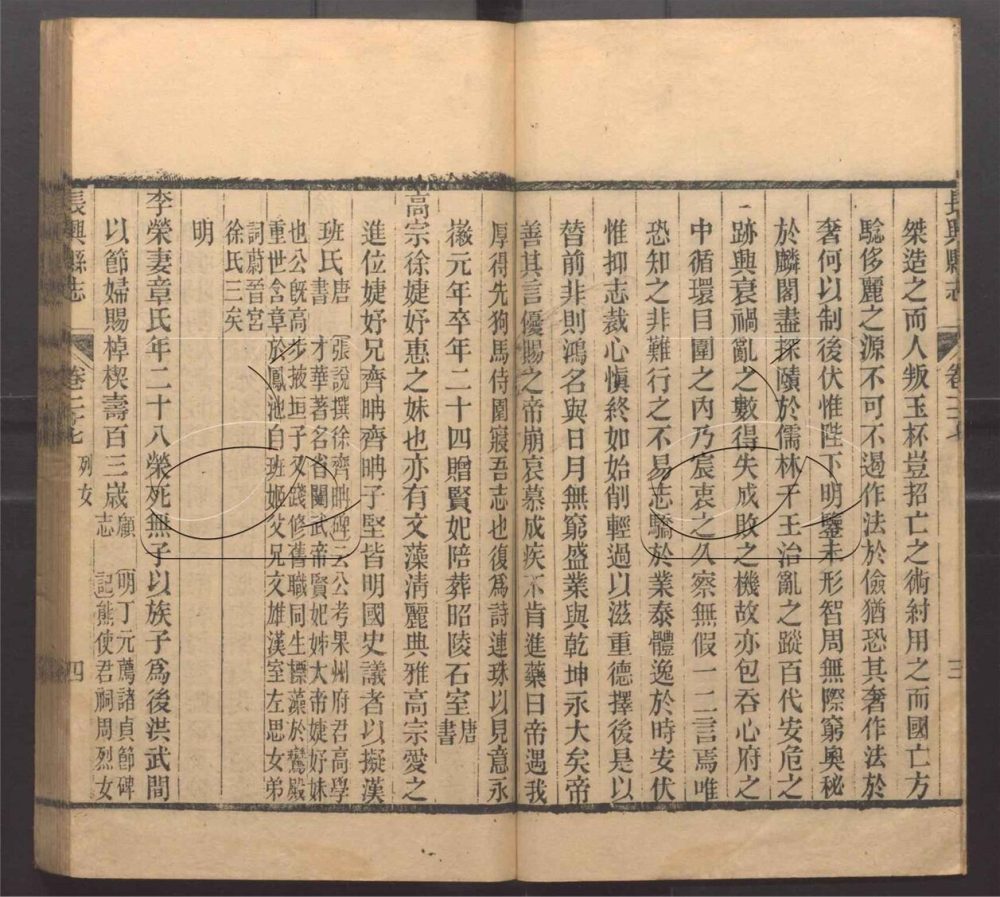 長興縣志 卷二十七 三
桀造之而人叛玉杯豈招亡之術紂用之而國亡方
騐侈麗之源不可不遏作法於儉猶恐其奢作法於
奢何以制後伏惟陛下明鑒未形智周無際窮奧秘
於麟閣盡探賾於儒林千王治亂之蹤百代安危之
跡興衰禍亂之數得失成敗之機故亦包吞心府之
中循環目圍之內乃宸衷之久察無假一二言焉唯
恐知之非難行之不易志驕於業泰體逸於時安伏
惟抑志裁心慎終如始削輕過以滋重德擇後是以
替前非則鴻名與日月無窮盛業與乾坤永大矣帝
善其言優賜之帝崩哀慕成疾不肯進藥曰帝遇我
厚得先狗馬侍園寢吾志也復爲詩連珠以見意永
徽元年卒年二十四贈賢妃陪葬昭陵石室唐書
高宗徐婕妤惠之妹也亦有文藻淸麗典雅高宗愛之
進位婕妤兄齊聃齊聃子堅皆明國史議者以擬漢
班氏唐書
張說撰徐齊聃碑云公考果州府君高學
才華著名省闥武帝賢妃姊大帝婕妤妹
也公旣高步掖垣子又踐修舊職同生標藻於鸞殿
重世含章於鳳池自班姬父兄文雄漢室左思女弟
詞蔚晉宮
徐氏三矣
明
李榮妻章氏年二十八榮死無子以族子爲後洪武間
以節婦賜棹楔壽百三歲顧志
明丁元薦諸貞節碑
記熊使君祠周烈女
長興縣志 卷二十七 列女 四